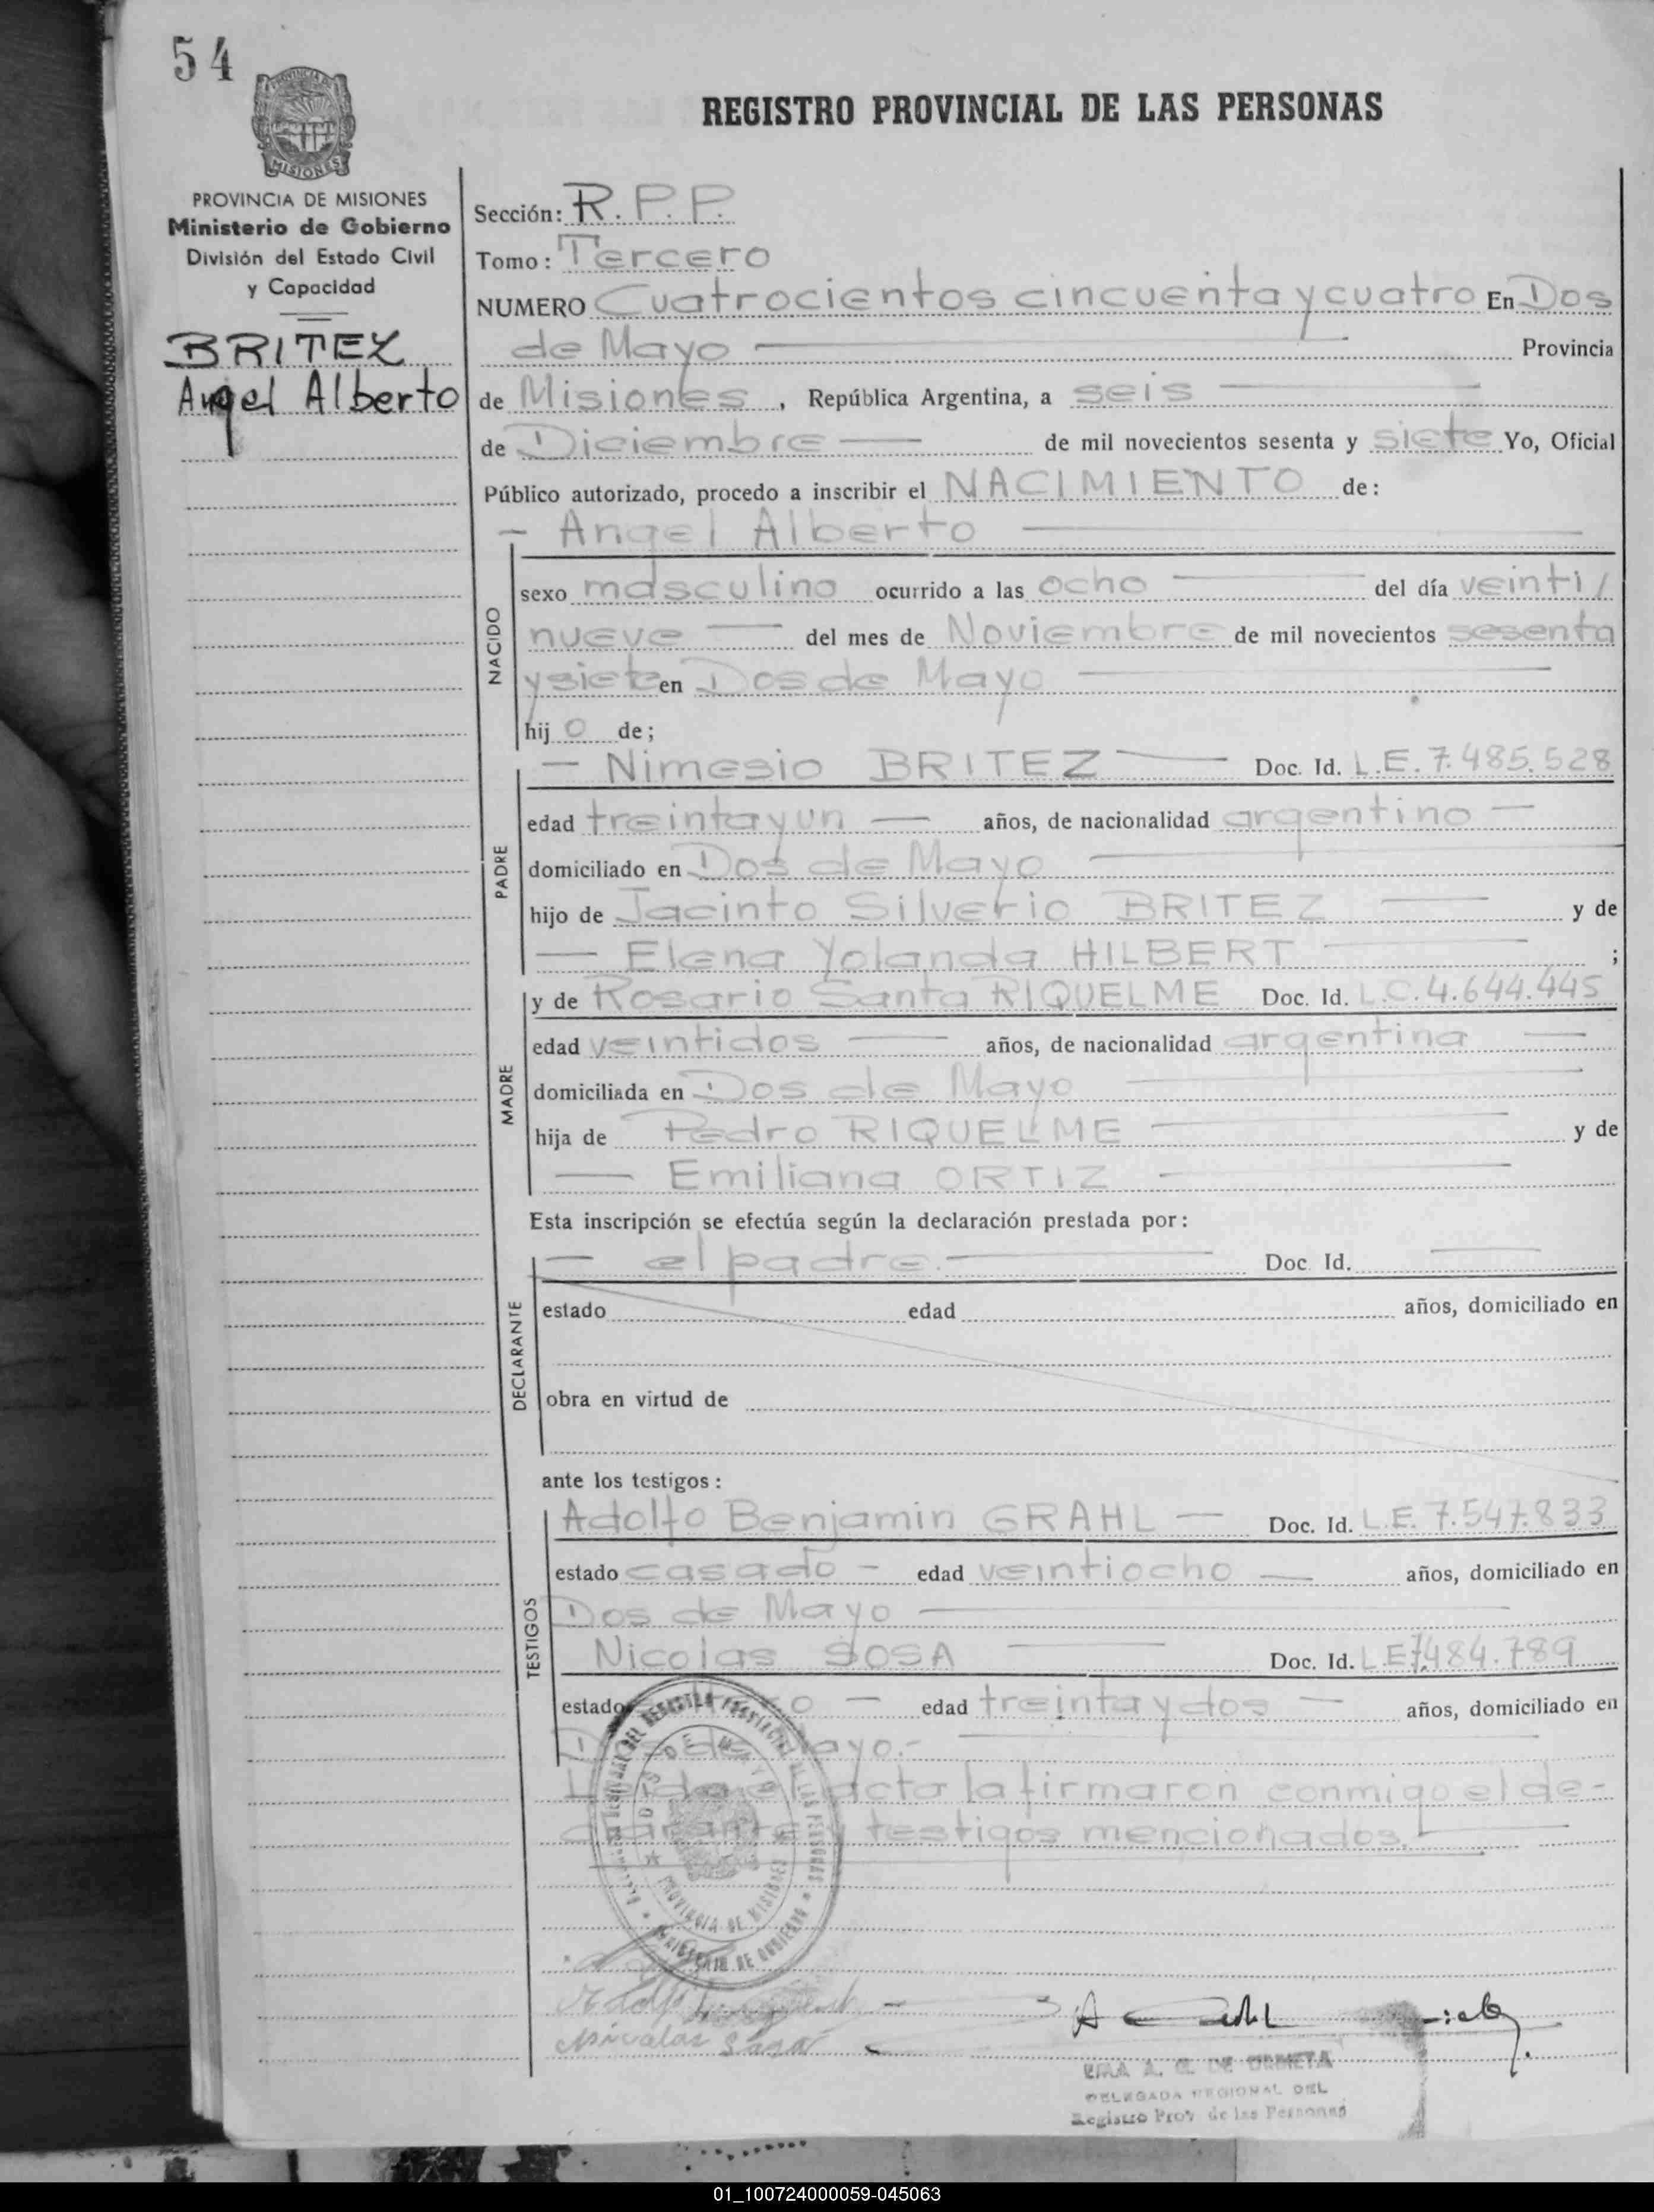 54
MISIONES
PROVINCIA DE MISIONES
Ministerio de Gobierno
División del Estado Civil
y Capacidad
BRITEZ
Angel Alberto
REGISTRO PROVINCIAL DE LAS PERSONAS
Sección: R.P.P.
Tomo: Tercero
NUMERO Cuatrocientos cincuenta y cuatro En Dos
de Mayo Provincia
de Misiones, República Argentina, a seis
de Diciembre de mil novecientos sesenta y siete Yo, Oficial
Público autorizado, procedo a inscribir el NACIMIENTO de:
- Angel Alberto
NACIDO
sexo masculino ocurrido a las ocho del día veinti/
nueve del mes de Noviembre de mil novecientos sesenta
y siete en Dos de Mayo
hijo de;
- Nimesio BRITEZ Doc. Id. L.E. 7.485.528
PADRE
edad treinta y un años, de nacionalidad argentino -
domiciliado en Dos de Mayo
hijo de Jacinto Silverio BRITEZ y de
- Elena Yolanda HILBERT ;
MADRE
y de Rosario Santa RIQUELME Doc. Id. L.C. 4.644.445
edad veintidos años, de nacionalidad argentina
domiciliada en Dos de Mayo
hija de Pedro RIQUELME y de
- Emiliana ORTIZ
Esta inscripción se efectúa según la declaración prestada por:
- el padre.- Doc. Id.
DECLARANTE
estado edad años, domiciliado en
obra en virtud de
ante los testigos:
TESTIGOS
Adolfo Benjamin GRAHL - Doc. Id. L.E. 7.547.833
estado casado - edad veintiocho años, domiciliado en
Dos de Mayo
Nicolas SOSA Doc. Id. L.E 7.484.789
estado - edad treinta y dos - años, domiciliado en
Dos de Mayo.-
Leida el acta la firmaron conmigo el de-
clarante y testigos mencionados.
DOS DE MAYO
PROVINCIA DE MISIONES
MINISTERIO DE GOBIERNO
Nicolas Sosa
DELEGADA REGIONAL DEL
Registro Prov de las Personas
01_100724000059-045063